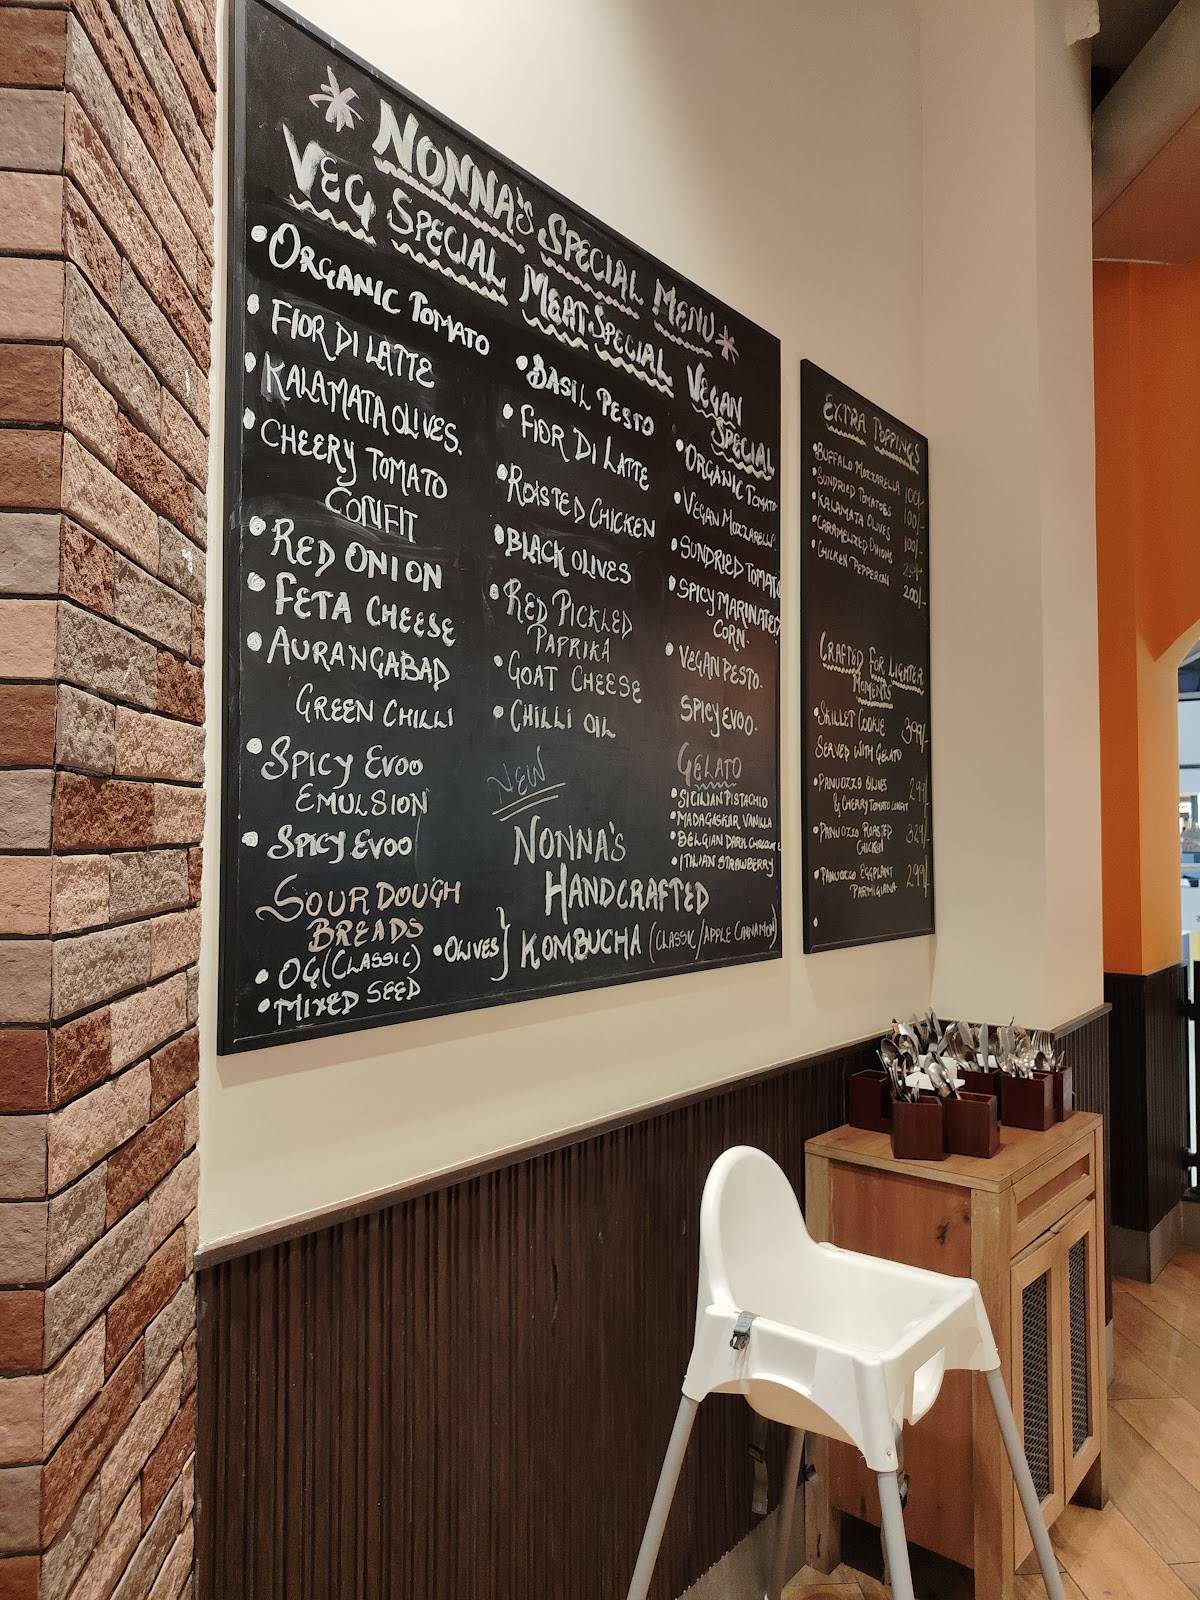 NONNA'S SPECIAL MENU
VEG SPECIAL
• ORGANIC TOMATO
• FIOR DI LATTE
• KALAMATA OLIVES.
• CHEERY TOMATO
CONFIT
• RED ONION
• FETA CHEESE
• AURANGABAD
GREEN CHILLI
• SPICY EVOO
EMULSION
• SPICY EVOO
SOURDOUGH
BREADS
• OG (CLASSIC)
• MIXED SEED
• OLIVES }
MEAT SPECIAL
• BASIL PESTO
• FIOR DI LATTE
• ROASTED CHICKEN
• BLACK OLIVES
• RED PICKLED
PAPRIKA
• GOAT CHEESE
• CHILLI OIL
NEW
NONNA'S
HANDCRAFTED
KOMBUCHA (CLASSIC/APPLE CINNAMON)
VEGAN
SPECIAL
• ORGANIC TOMATO
• VEGAN MOZZARELLA
• SUNDRIED TOMATO
• SPICY MARINATED
CORN.
• VEGAN PESTO.
SPICY EVOO.
GELATO
• SICILIAN PISTACHIO
• MADAGASKAR VANILLA
• BELGIAN DARK
• ITALIAN STRAWBERRY
EXTRA TOPPINGS
• BUFFALO MOZZARELLA 100/-
• SUNDRIED TOMATOES 100/-
• KALAMATA OLIVES 100/-
• CARAMELIZED ONIONS
• CHICKEN PEPPERONI 200/-
CRAFTED FOR LIGHTER
MOMENTS
• SKILLET COOKIE 399/-
SERVED WITH GELATO
• PANUOZZO OLIVES
& CHERRY TOMATO CONFIT
• PANUOZZO ROASTED 329/-
CHICKEN
• PANUOZZO EGGPLANT 299/-
PARMIGIANA